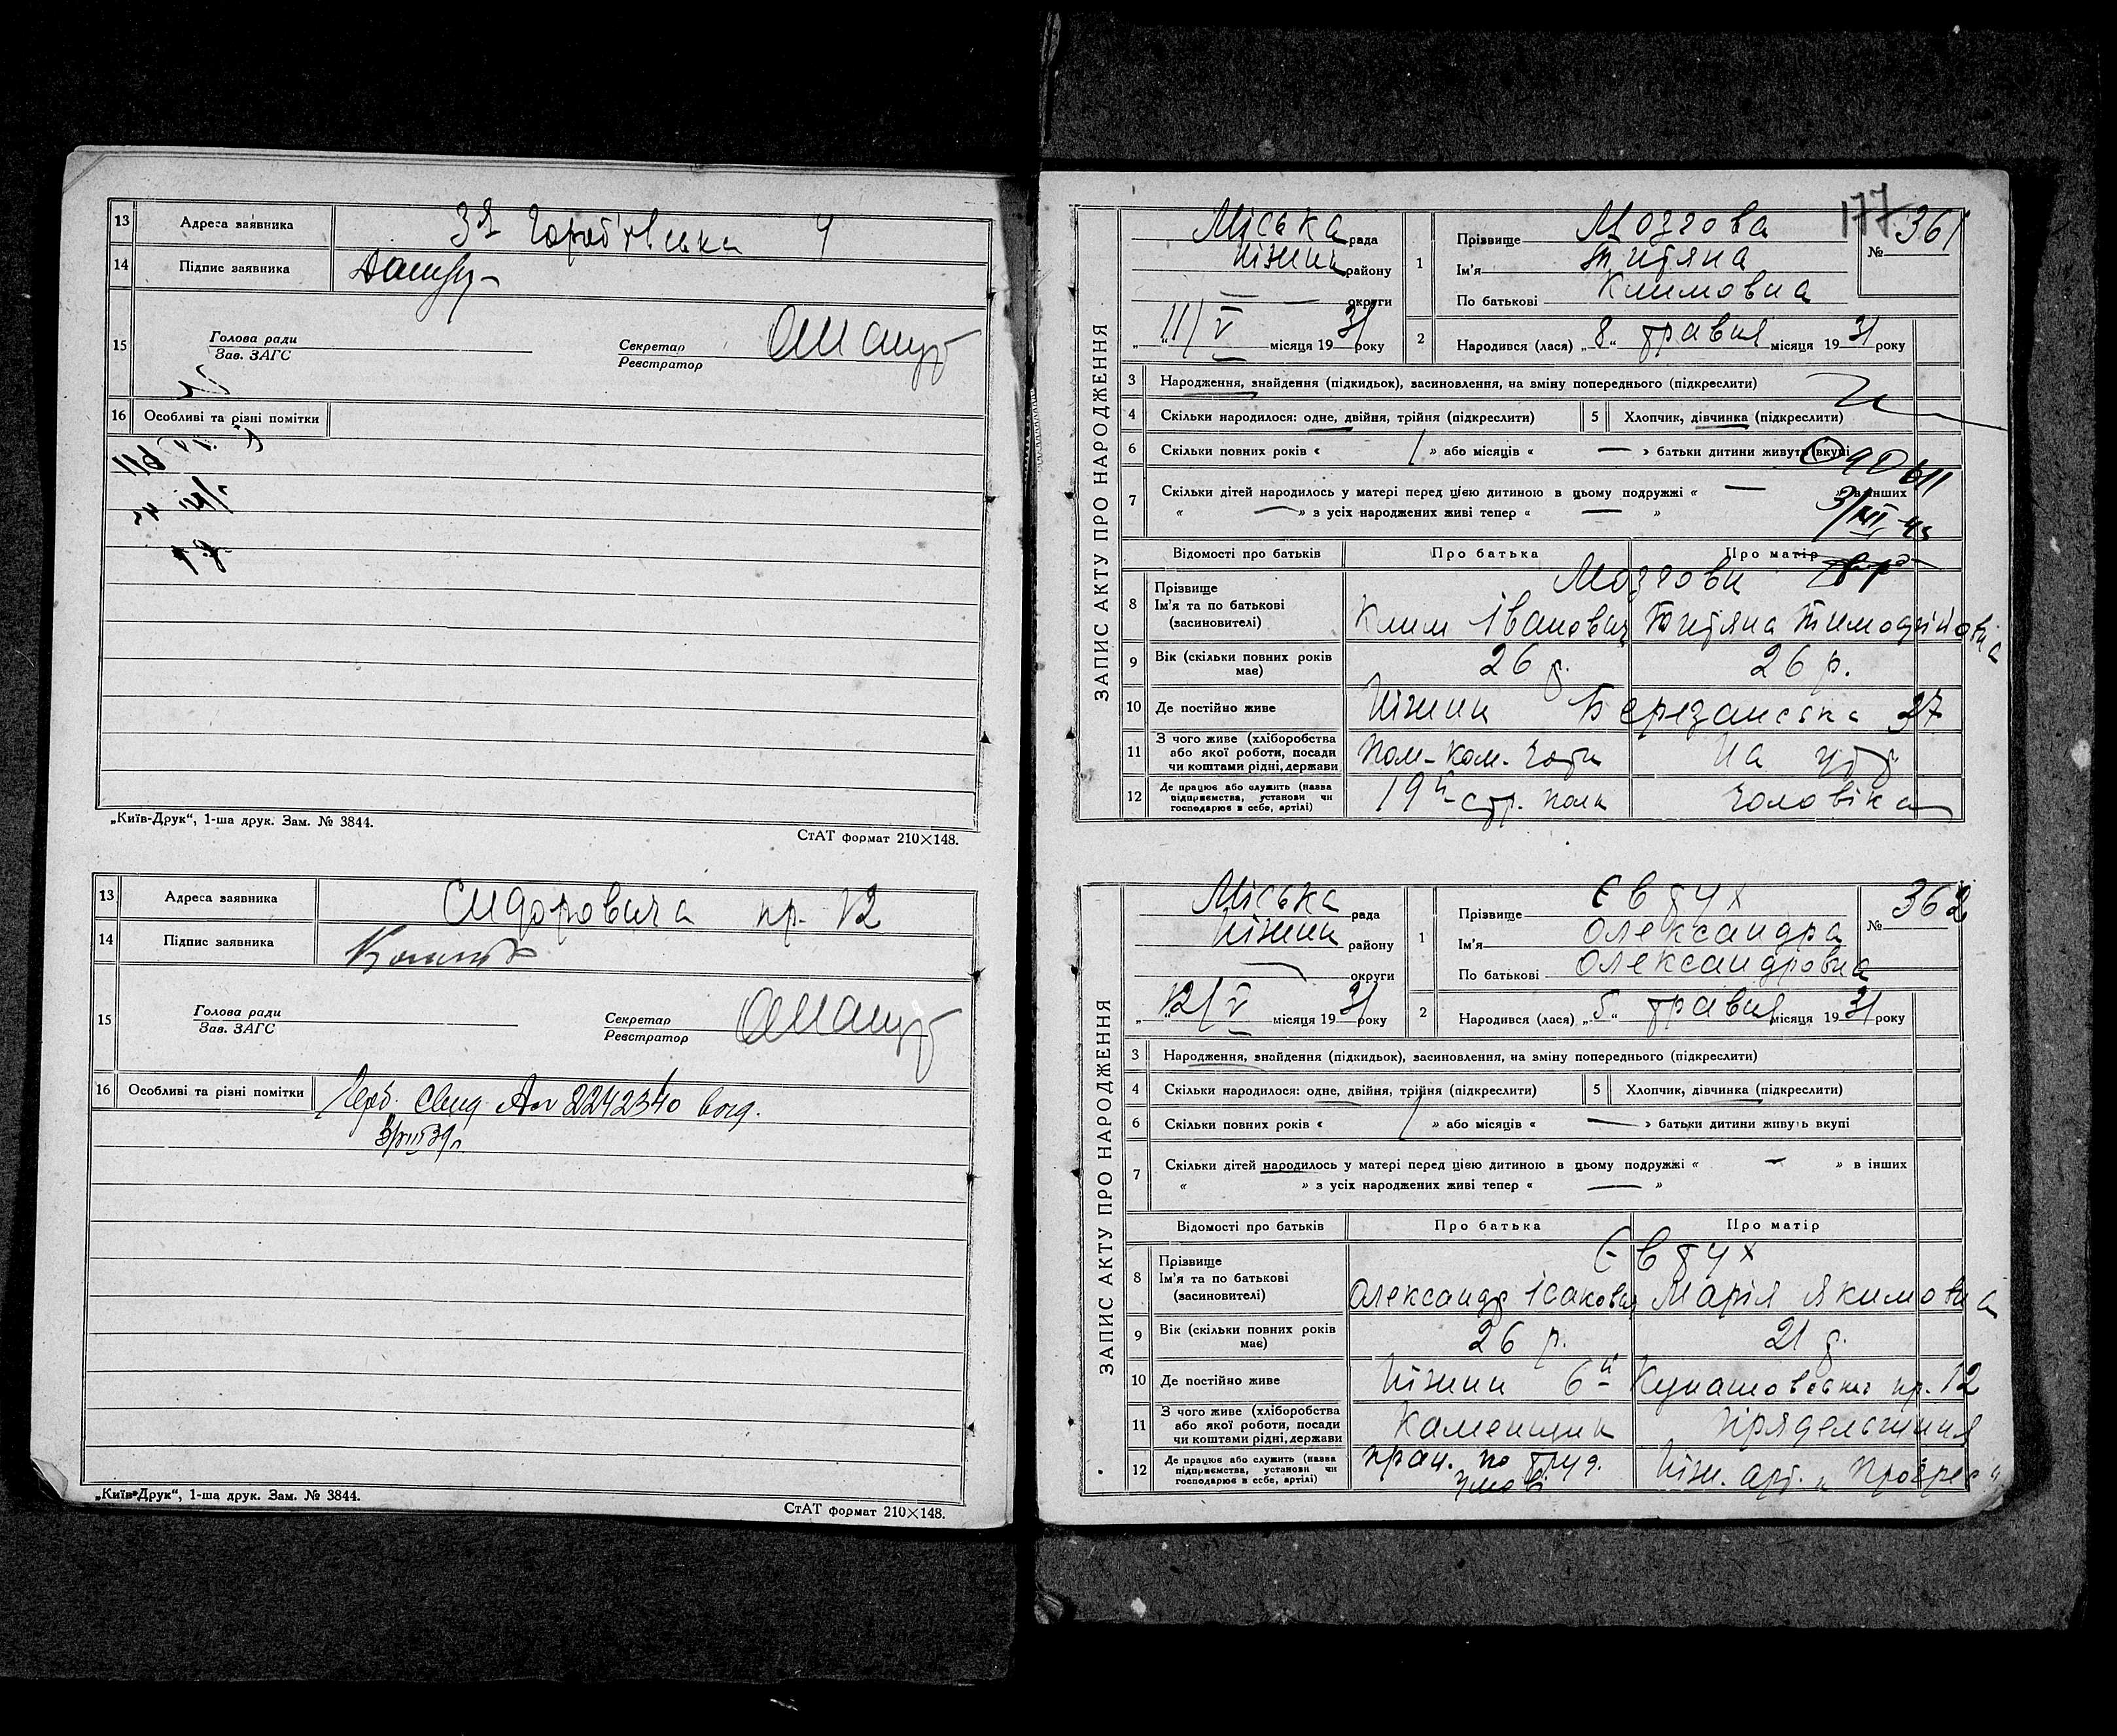 13 Адреса заявника 4
14 Підпис заявника
15 Голова ради
Зав. ЗАГС
Секретар
Реєстратор
16 Особливі та різні помітки
„Київ-Друк“, 1-ша друк. Зам. № 3844.
СтАТ формат 210×148.
13 Адреса заявника Сидоровича пр. 12
14 Підпис заявника
15 Голова ради
Зав. ЗАГС
Секретар
Реєстратор
16 Особливі та різні помітки
„Київ-Друк“, 1-ша друк. Зам. № 3844.
СтАТ формат 210×148.
177
ЗАПИС АКТУ ПРО НАРОДЖЕННЯ
Міська рада
Ніжин району
— округи
„11/V“ місяця 1931 року
1 Прізвище Мозгова
Ім'я Титяна
По батькові Климовна
№ 361
2 Народився (лася) „8“ травня місяця 1931 року
3 Народження, знайдення (підкидьок), засиновлення, на зміну попереднього (підкреслити)
4 Скільки народилося: одне, двійня, трійня (підкреслити)
5 Хлопчик, дівчинка (підкреслити)
6 Скільки повних років « 1 » або місяців « — » батьки дитини живуть вкупі
7 Скільки дітей народилось у матері перед цією дитиною в цьому подружжі « — » в інших
« — » з усіх народжених живі тепер « — »
Відомості про батьків Про батька Про матір
8 Прізвище Мозгови
Ім'я та по батькові Клим Іванович Титяна Тимофіїовна
(засиновителі)
9 Вік (скільки повних років має) 26 р. 26 р.
10 Де постійно живе Ніжин Березанська 37
11 З чого живе (хліборобства або якої роботи, посади чи коштами рідні, держави Пом-ком. чоти На утр
12 Де працює або служить (назва підприємства, установи чи господарює в себе, артілі) 19й стр. полк чоловіка
ЗАПИС АКТУ ПРО НАРОДЖЕННЯ
Міська рада
Ніжин району
— округи
„12/V“ місяця 1931 року
1 Прізвище Євтух
Ім'я Олександра
По батькові Олександровна
№ 362
2 Народився (лася) „5“ травня місяця 1931 року
3 Народження, знайдення (підкидьок), засиновлення, на зміну попереднього (підкреслити)
4 Скільки народилося: одне, двійня, трійня (підкреслити)
5 Хлопчик, дівчинка (підкреслити)
6 Скільки повних років « 1 » або місяців « — » батьки дитини живуть вкупі
7 Скільки дітей народилось у матері перед цією дитиною в цьому подружжі « — » в інших
« » з усіх народжених живі тепер « — »
Відомості про батьків Про батька Про матір
8 Прізвище Євтух
Ім'я та по батькові Олександр Ісакович Марія Якимовна
(засиновителі)
9 Вік (скільки повних років має) 26 р. 21 р.
10 Де постійно живе Ніжин 6й Кунашовськи пр. 12
11 З чого живе (хліборобства або якої роботи, посади чи коштами рідні, держави Каменщик Прядельщиця
12 Де працює або служить (назва підприємства, установи чи господарює в себе, артілі) прац. по труд. умові Ніж. арт. „Прогрес“